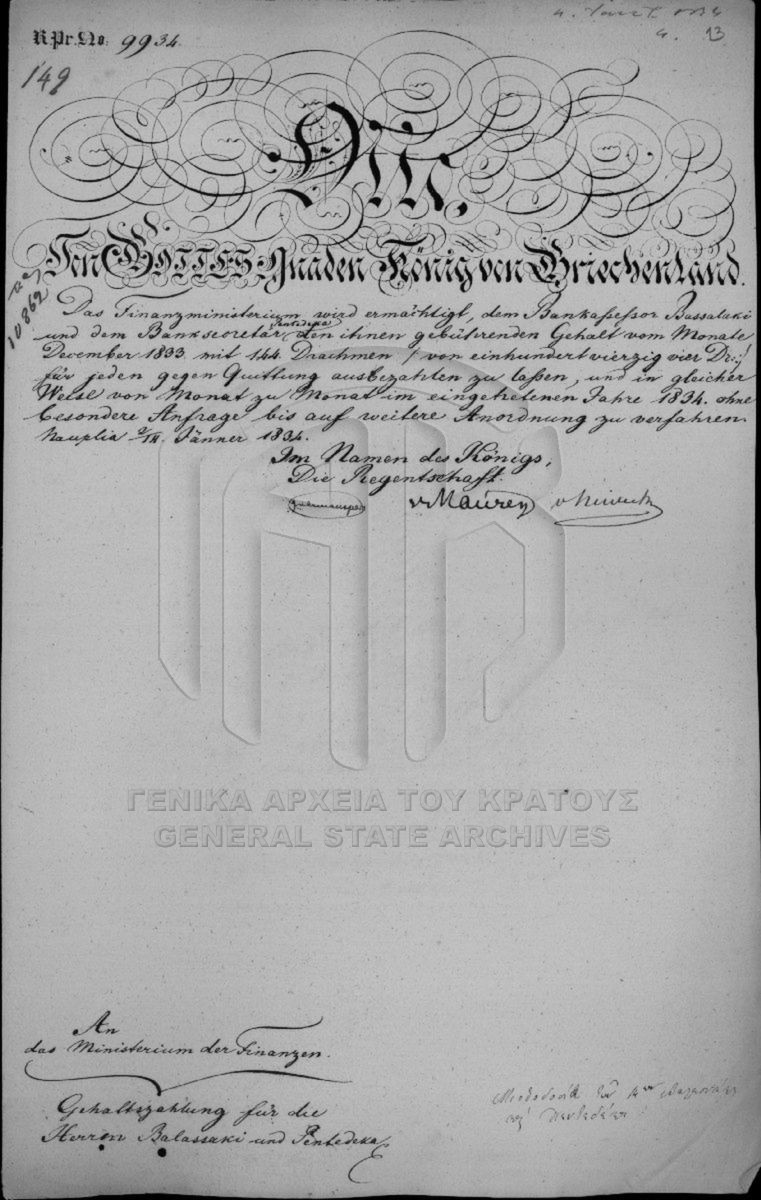 R.Pr.No: 9934.
149
10862
Otto.
Von Gottes Gnaden König von Griechenland.
Das Finanzministerium wird ermächtigt, dem Bankassessor Bassalaki
und dem Banksecretär Pentedeka den ihnen gebührenden Gehalt vom Monate
December 1833 mit 144 Drachmen /: von einhundertvierzig vier Dr:/
für jeden gegen Quittung ausbezahlen zu laßen, und in gleicher
Weise von Monat zu Monat im eingetretenen Jahre 1834. ohne
besondere Anfrage bis auf weitere Anordnung zu verfahren.
Nauplia Jänner 1834.
Im Namen des Königs,
Die Regentschaft.
v Maurer
ΓΕΝΙΚΑ ΑΡΧΕΙΑ ΤΟΥ ΚΡΑΤΟΥΣ
GENERAL STATE ARCHIVES
An
das Ministerium der Finanzen.
Gehaltszahlung für die
Herren Balassaki und Pentedeka